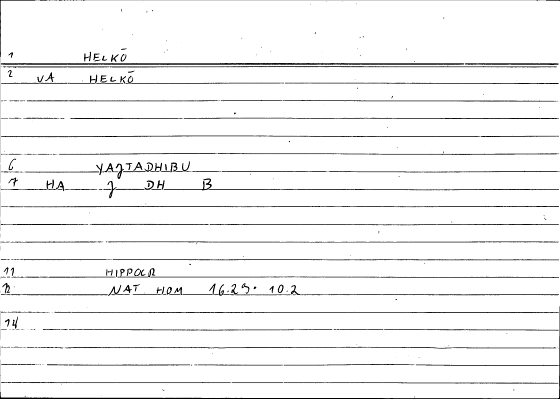 1 HELKŌ
2 VA HELKŌ
6 YAJTADHIBU
7 HA J DH B
11 HIPPOCR
12 NAT HOM 16.25 10.2
14